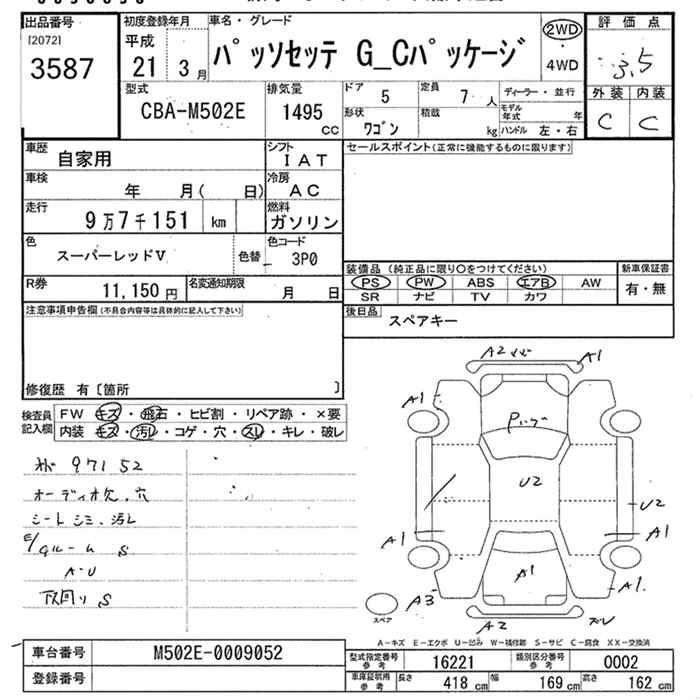 出品番号
[2072]
3587
初度登録年月
平成
21 3月
車名・グレード
パッソセッテ G_Cパッケージ
2WD
・
4WD
評価点
3.5
外装 内装
C C
型式
CBA-M502E
排気量
1495
cc
ドア 5
定員 7人
形状
ワゴン
積載
kg
ディーラー・並行
モデル年式 年
ハンドル 左・右
車歴
自家用
シフト
IAT
車検
年 月( 日)
冷房
AC
走行
9万7千151 km
燃料
ガソリン
色
スーパーレッドV
色替
色コード
3P0
R券
11,150円
名変通知期限
月 日
セールスポイント(正常に機能するものに限ります)
装備品(純正品に限り〇をつけてください)
PS PW ABS エアB AW
SR ナビ TV カワ
新車保証書
有・無
後日品
スペアキー
注意事項申告欄(不具合内容等は具体的に記入して下さい)
修復歴 有〔箇所 〕
検査員記入欄
FW キズ・飛石・ヒビ割・リペア跡・×要
内装 キズ・汚レ・コゲ・穴・スレ・キレ・破レ
97152
オーディオ欠.穴
シート シミ.汚レ
E/gルーム S
A-U
下回り S
A2
A1
A1
U2
U2
A1
A1
A1
A1
A3
A2
スペア
A-キズ E-エクボ U-凹み W-補修跡 S-サビ C-腐食 XX-交換済
車台番号
M502E-0009052
登録番号
型式指定番号 参考
16221
類別区分番号 参考
0002
車庫証明用 参考
長さ 418cm 幅 169cm 高さ 162cm